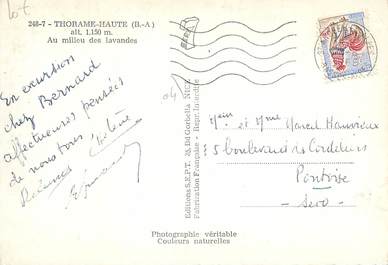 248-7 - THORAME-HAUTE (B.-A)
alt. 1.150 m.
Au milieu des lavandes
En excursion
chez Bernard
affectueuses pensées
de nous tous
Hélène
Editions S.E.P.T. 35, Bd Gorbella NICE
Fabrication Française - Repr. interdite
Mr et Mme Marcel
5 boulevard des Cordeliers
Pontoise
Photographie véritable
Couleurs naturelles